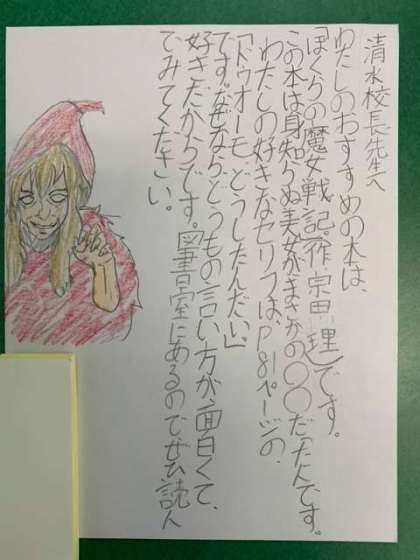 清水校長先生へ
わたしのおすすめの本は、
「ぼくらの魔女戦記」(作 宗田 理)です。
この本は身知らぬ美女がまさかの〇〇だったんです。
わたしの好きなセリフは、P81ページの、
「ドゥオーモ、どうしたんだい。」
です。なぜならとうもの言い方が面白くて、
好きだからです。図書室にあるのでぜひ読ん
でみてください。